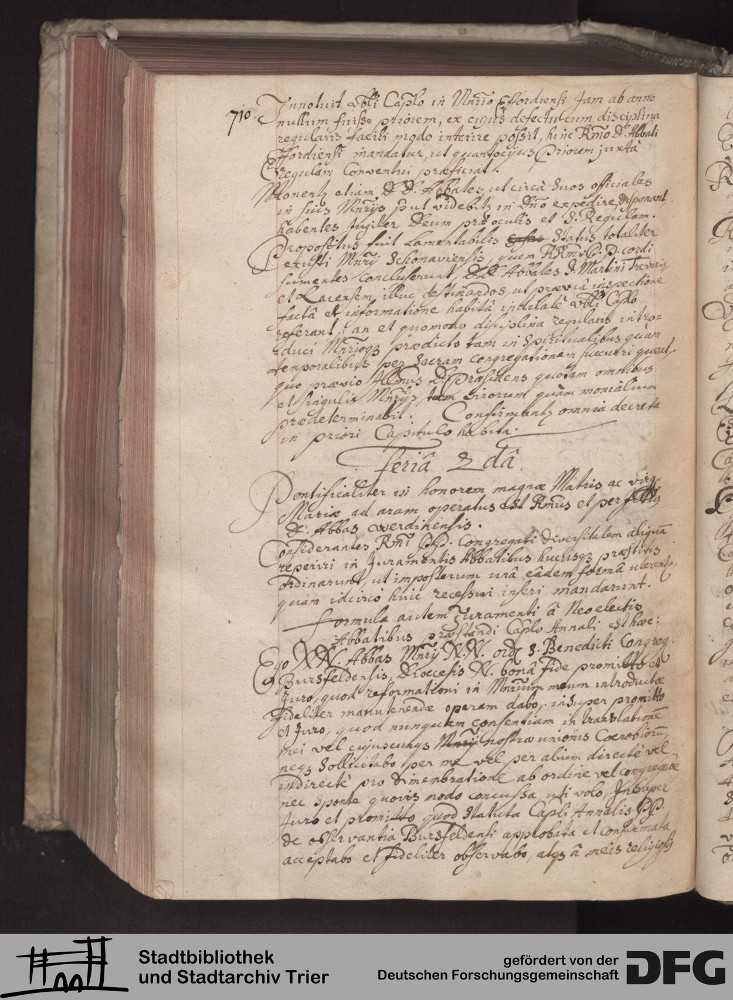 710. Innotuit Vbli Caplo in Mnrio Effordiensi Jam ab anno
nullum fuisse priorem, ex cujus defectu cum disciplina
regularis facili modo interire possit, hinc Rmo D. Abbati
Effordiensi mandatur, ut quantocyus Priorem juxta
Regulam Conventui præficiat.
Monentur etiam D. D. Abbates, ut circà suos officiales
in suis Mnrijs put videbitur in Dno expedire, disponant
habentes jugiter Deum præ oculis et S. Regulam.
Propositus fuit lamentabilis Status totaliter
exusti Mnrij Schonaviensis, quem RRmi P. P. cordi
sumentes concluserunt Abbates S. Martini Treviris
et Lacensem illuc destinandos, ut præviâ inspectione
factâ et informatione habitâ Vbli Caplo
referant, an et quomodo disciplina regularis intro-
duci Mnrioq prædicto tam in spiritualibus quàm
temporalibus per Sacram congregationem succurri queat,
quo prævio D. Præsidens quotam omnibus
et singulis Mnrijs tam virorum quàm monialium
prædeterminabit. Confirmantur omnia decreta
in priori Capitulo habita.
Feriâ 2dâ
Pontificaliter in honorem magnæ Matris ac virg.
Mariæ ad aram operatus est Rmus et per
D. Abbas Werdinensis.
Considerantes Rmi Congregati diversitatem aliquam
reperiri in Juramentis Abbatibus hucusq præstitis
ordinarunt, ut imposterum unâ eâdem formâ uterentur,
quam idcirco huic recessui inseri mandarunt.
Formula autem Juramenti â Neoelectis
Abbatibus præstandi Caplo Annali est hæc:
Ego N. N. Abbas Mnrij N. N. ord. S. Benedicti Congreg.
Bursfeldensis, Dioecesis N. bonâ fide promitto et
Juro, quod reformationi in Mnrium meum introductæ
fideliter manutenendæ operam dabo; insuper promitto
et Juro, quod nunquam consentiam in translationem
mei vel cujuscunq nostræ unionis Coenobiorum,
neq sollicitabo per me vel per alium directè vel
indirectè pro dimembratione ab ordine vel congregatione
nec sponte quovis modo concussa uti volo, Insuper
Juro et promitto quod statuta Capli Annalis PP.
de observantia Bursfeldensi approbata et confirmata
acceptabo et fideliter observabo, atq â meis religiosis
Stadtbibliothek
und Stadtarchiv Trier
gefördert von der
Deutschen Forschungsgemeinschaft
DFG